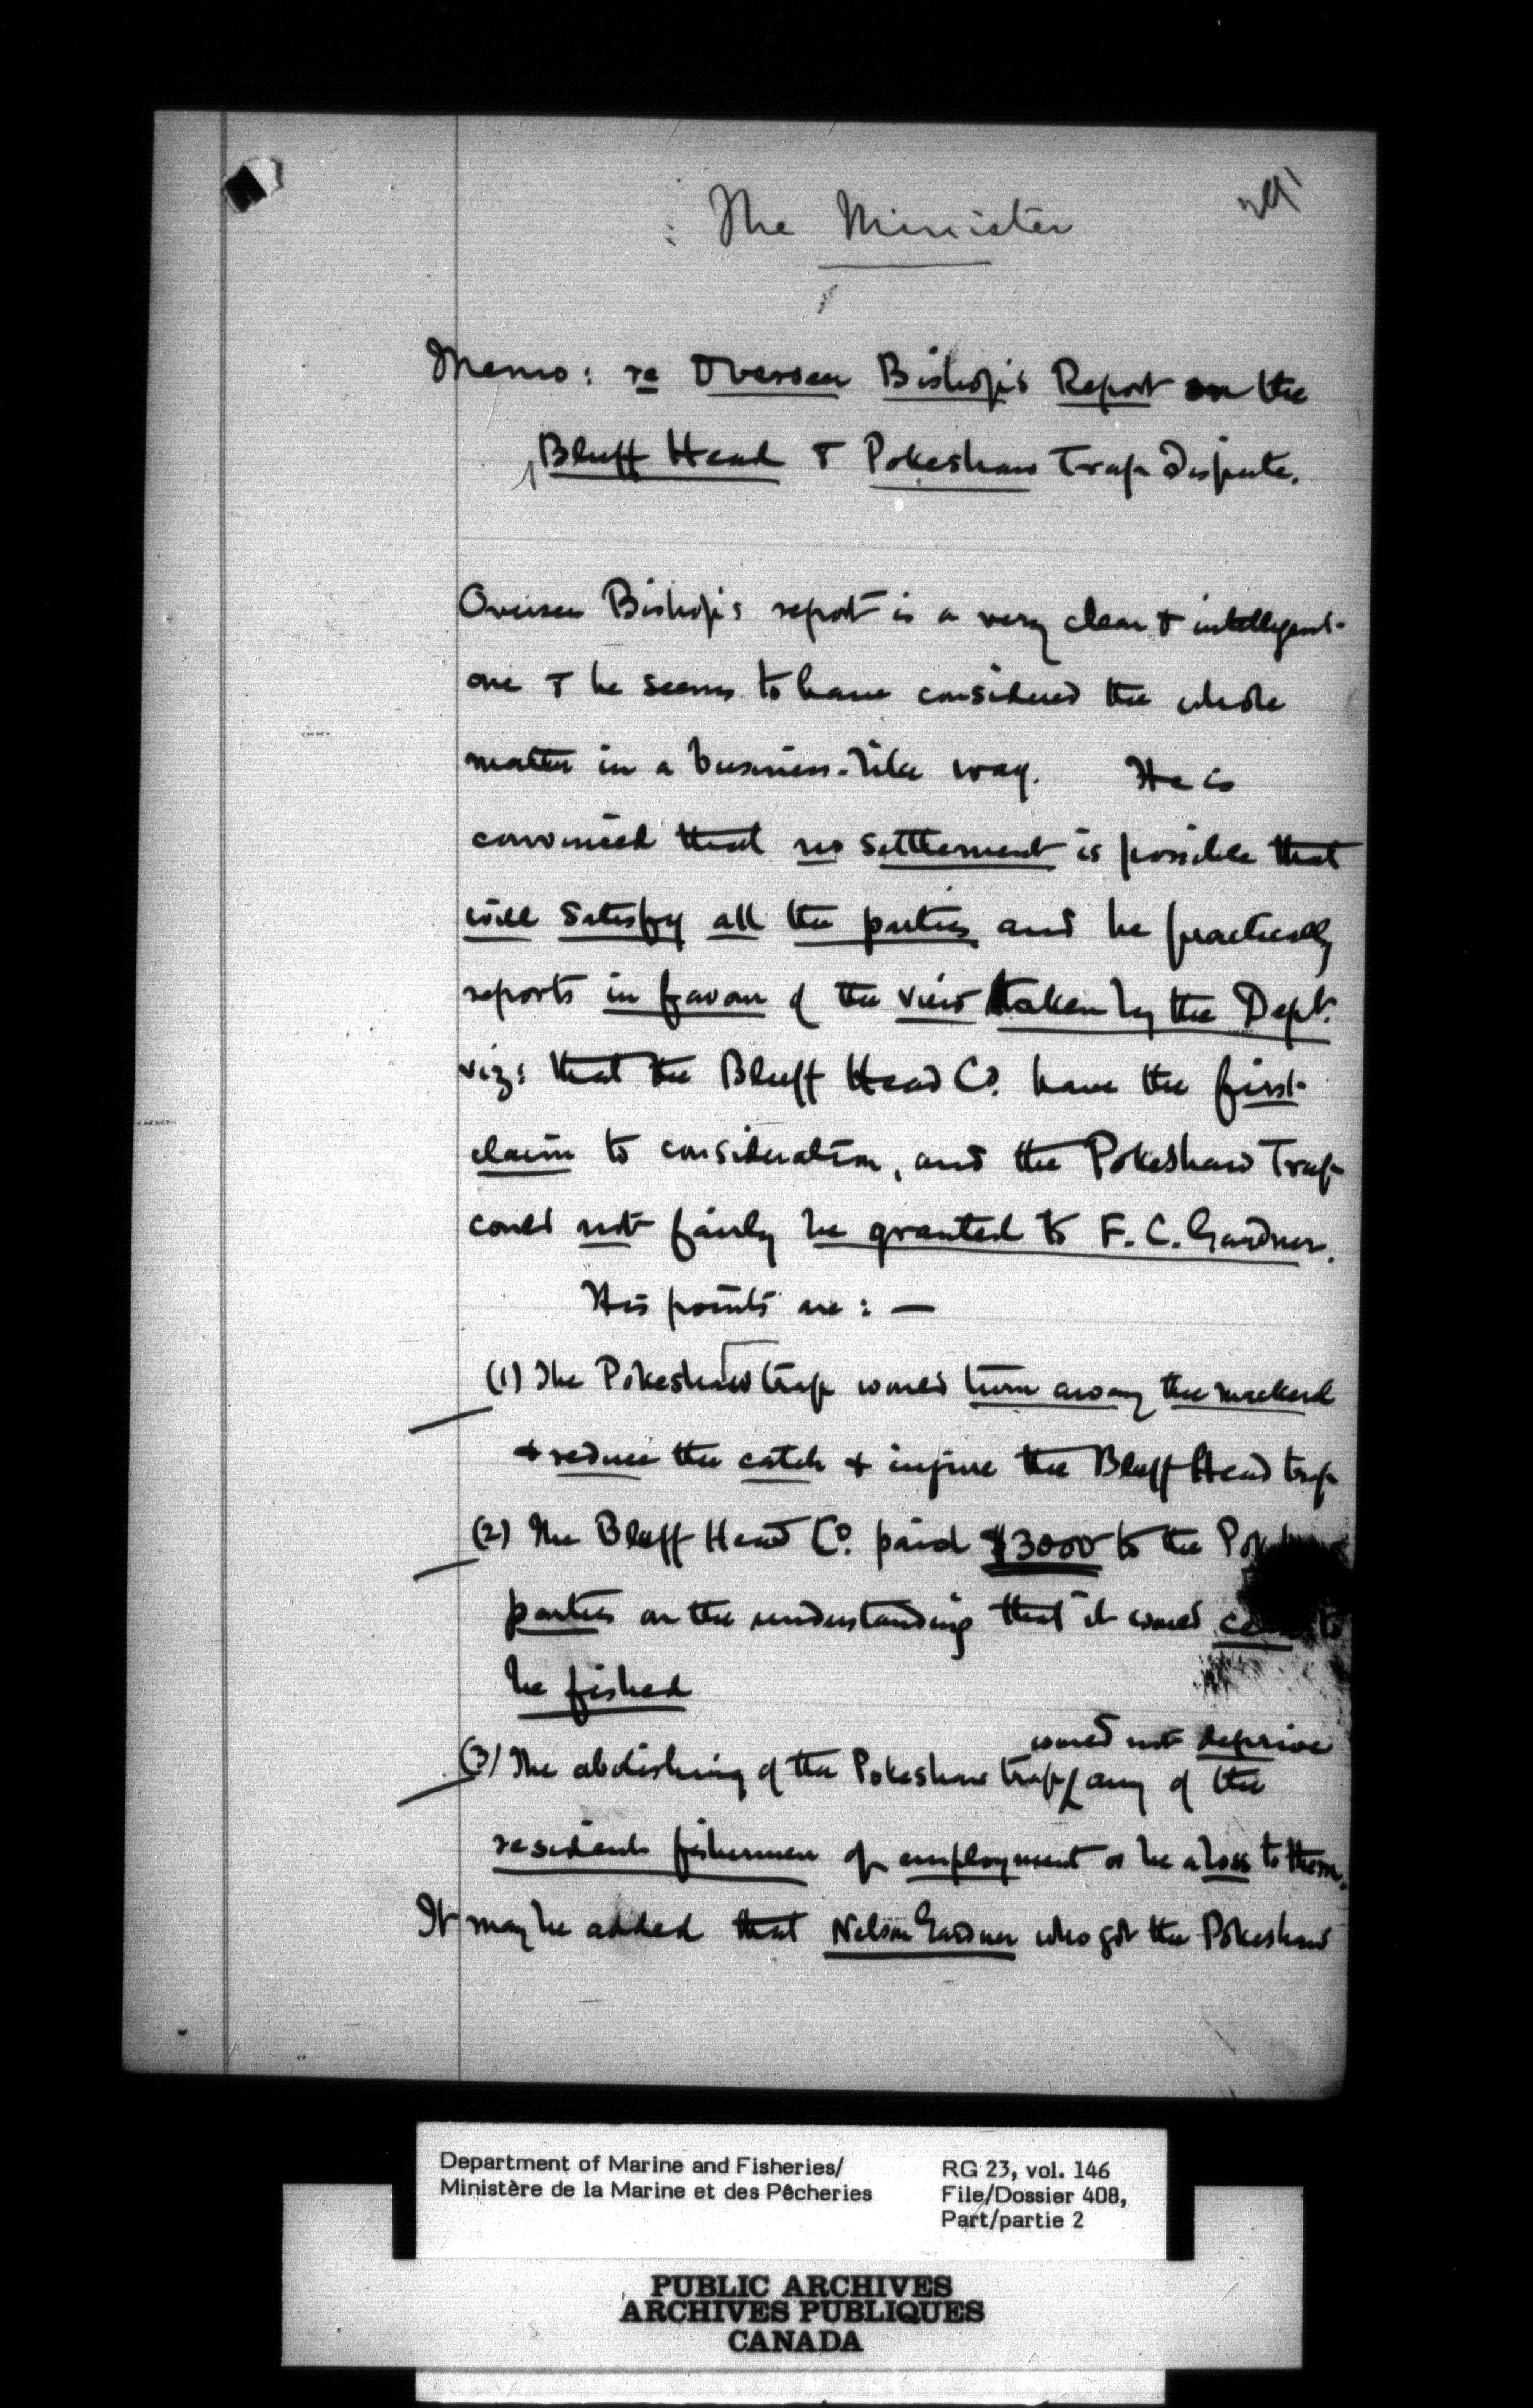 291
The Minister
Memo: re Overseer Bishop's Report on the
Bluff Head & Pokeshaw Trap Dispute.
Overseer Bishop's report is a very clear & intelligent
one & he seems to have considered the whole
matter in a business-like way. He is
convinced that no settlement is possible that
will satisfy all the parties and he practically
reports in favour of the view taken by the Dept.
viz: that the Bluff Head Co. have the first
claim to consideration, and the Pokeshaw Trap
could not fairly be granted to F. C. Gardner.
His points are: —
(1) The Pokeshaw trap would turn away the mackerel
& reduce the catch & injure the Bluff Head trap
(2) The Bluff Head Co. paid $3000 to the
parties on the understanding that it would to
be fished
would not deprive
(3) The abolishing of the Pokeshaw trap any of the
resident fishermen of employment or be a loss to them.
It may be added that Nelson Gardner who got the Pokeshaw
Department of Marine and Fisheries/
Ministère de la Marine et des Pêcheries
RG 23, vol. 146
File/Dossier 408,
Part/partie 2
PUBLIC ARCHIVES
ARCHIVES PUBLIQUES
CANADA